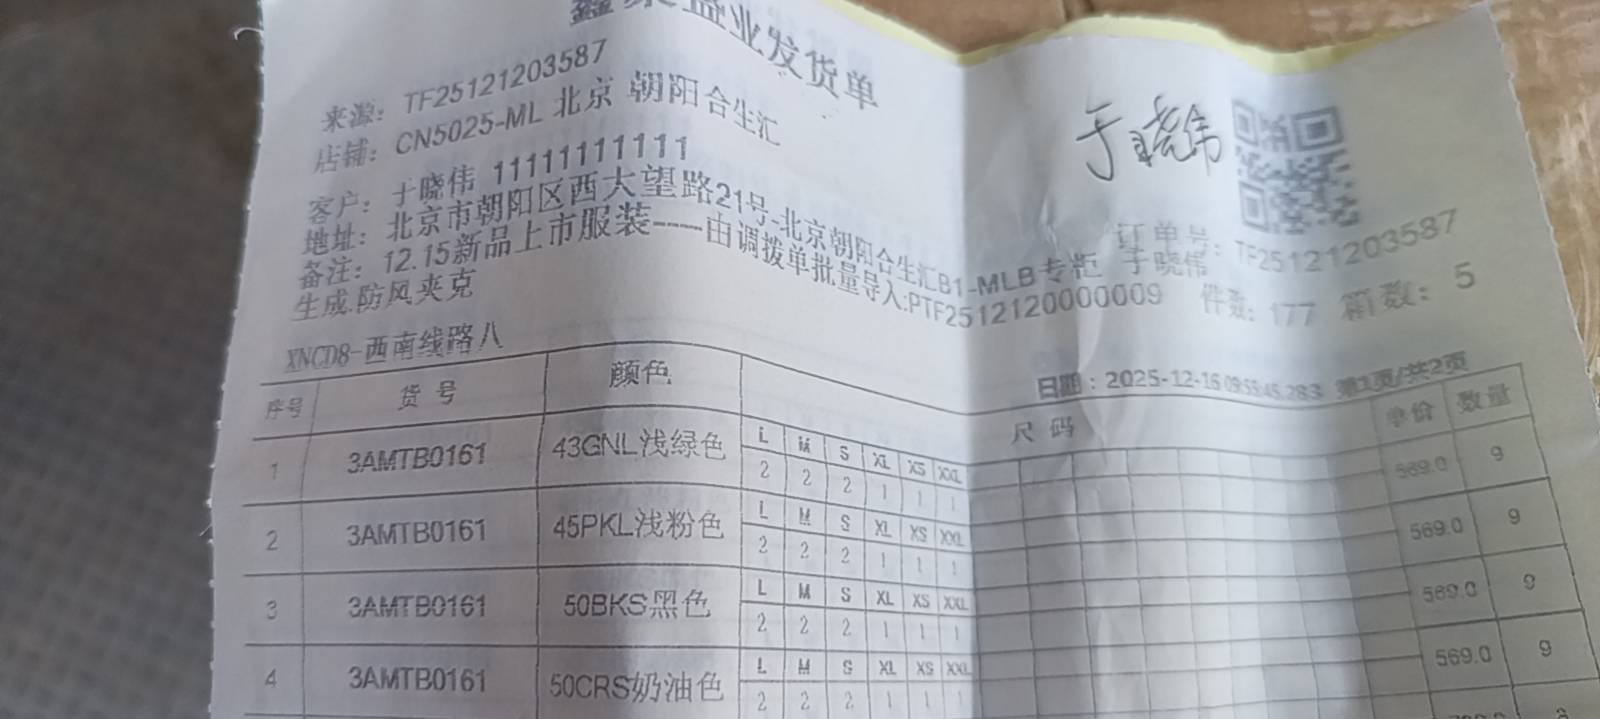 业发货单
来源： TF25121203587
店铺： CN5025-ML 北京 朝阳合生汇
于晓伟
客户： 于晓伟 11111111111
订单号： TF25121203587
地址： 北京市朝阳区西大望路21号-北京朝阳合生汇B1-MLB专柜 于晓伟
备注： 12.15新品上市服装----由调拨单批量导入:PTF2512120000009 件数： 177 箱数： 5
生成.防风夹克
XNCD8-西南线路八
日期：2025-12-16 09:55:45.283 第1页/共2页
序号 货号 颜色 尺码 单价 数量
1 3AMTB0161 43GNL浅绿色 L M S XL XS XXL 569.0 9
2 2 2 1 1 1
2 3AMTB0161 45PKL浅粉色 L M S XL XS XXL 569.0 9
2 2 2 1 1 1
3 3AMTB0161 50BKS黑色 L M S XL XS XXL 569.0 9
2 2 2 1 1 1
4 3AMTB0161 50CRS奶油色 L M S XL XS XXL 569.0 9
2 2 2 1 1 1